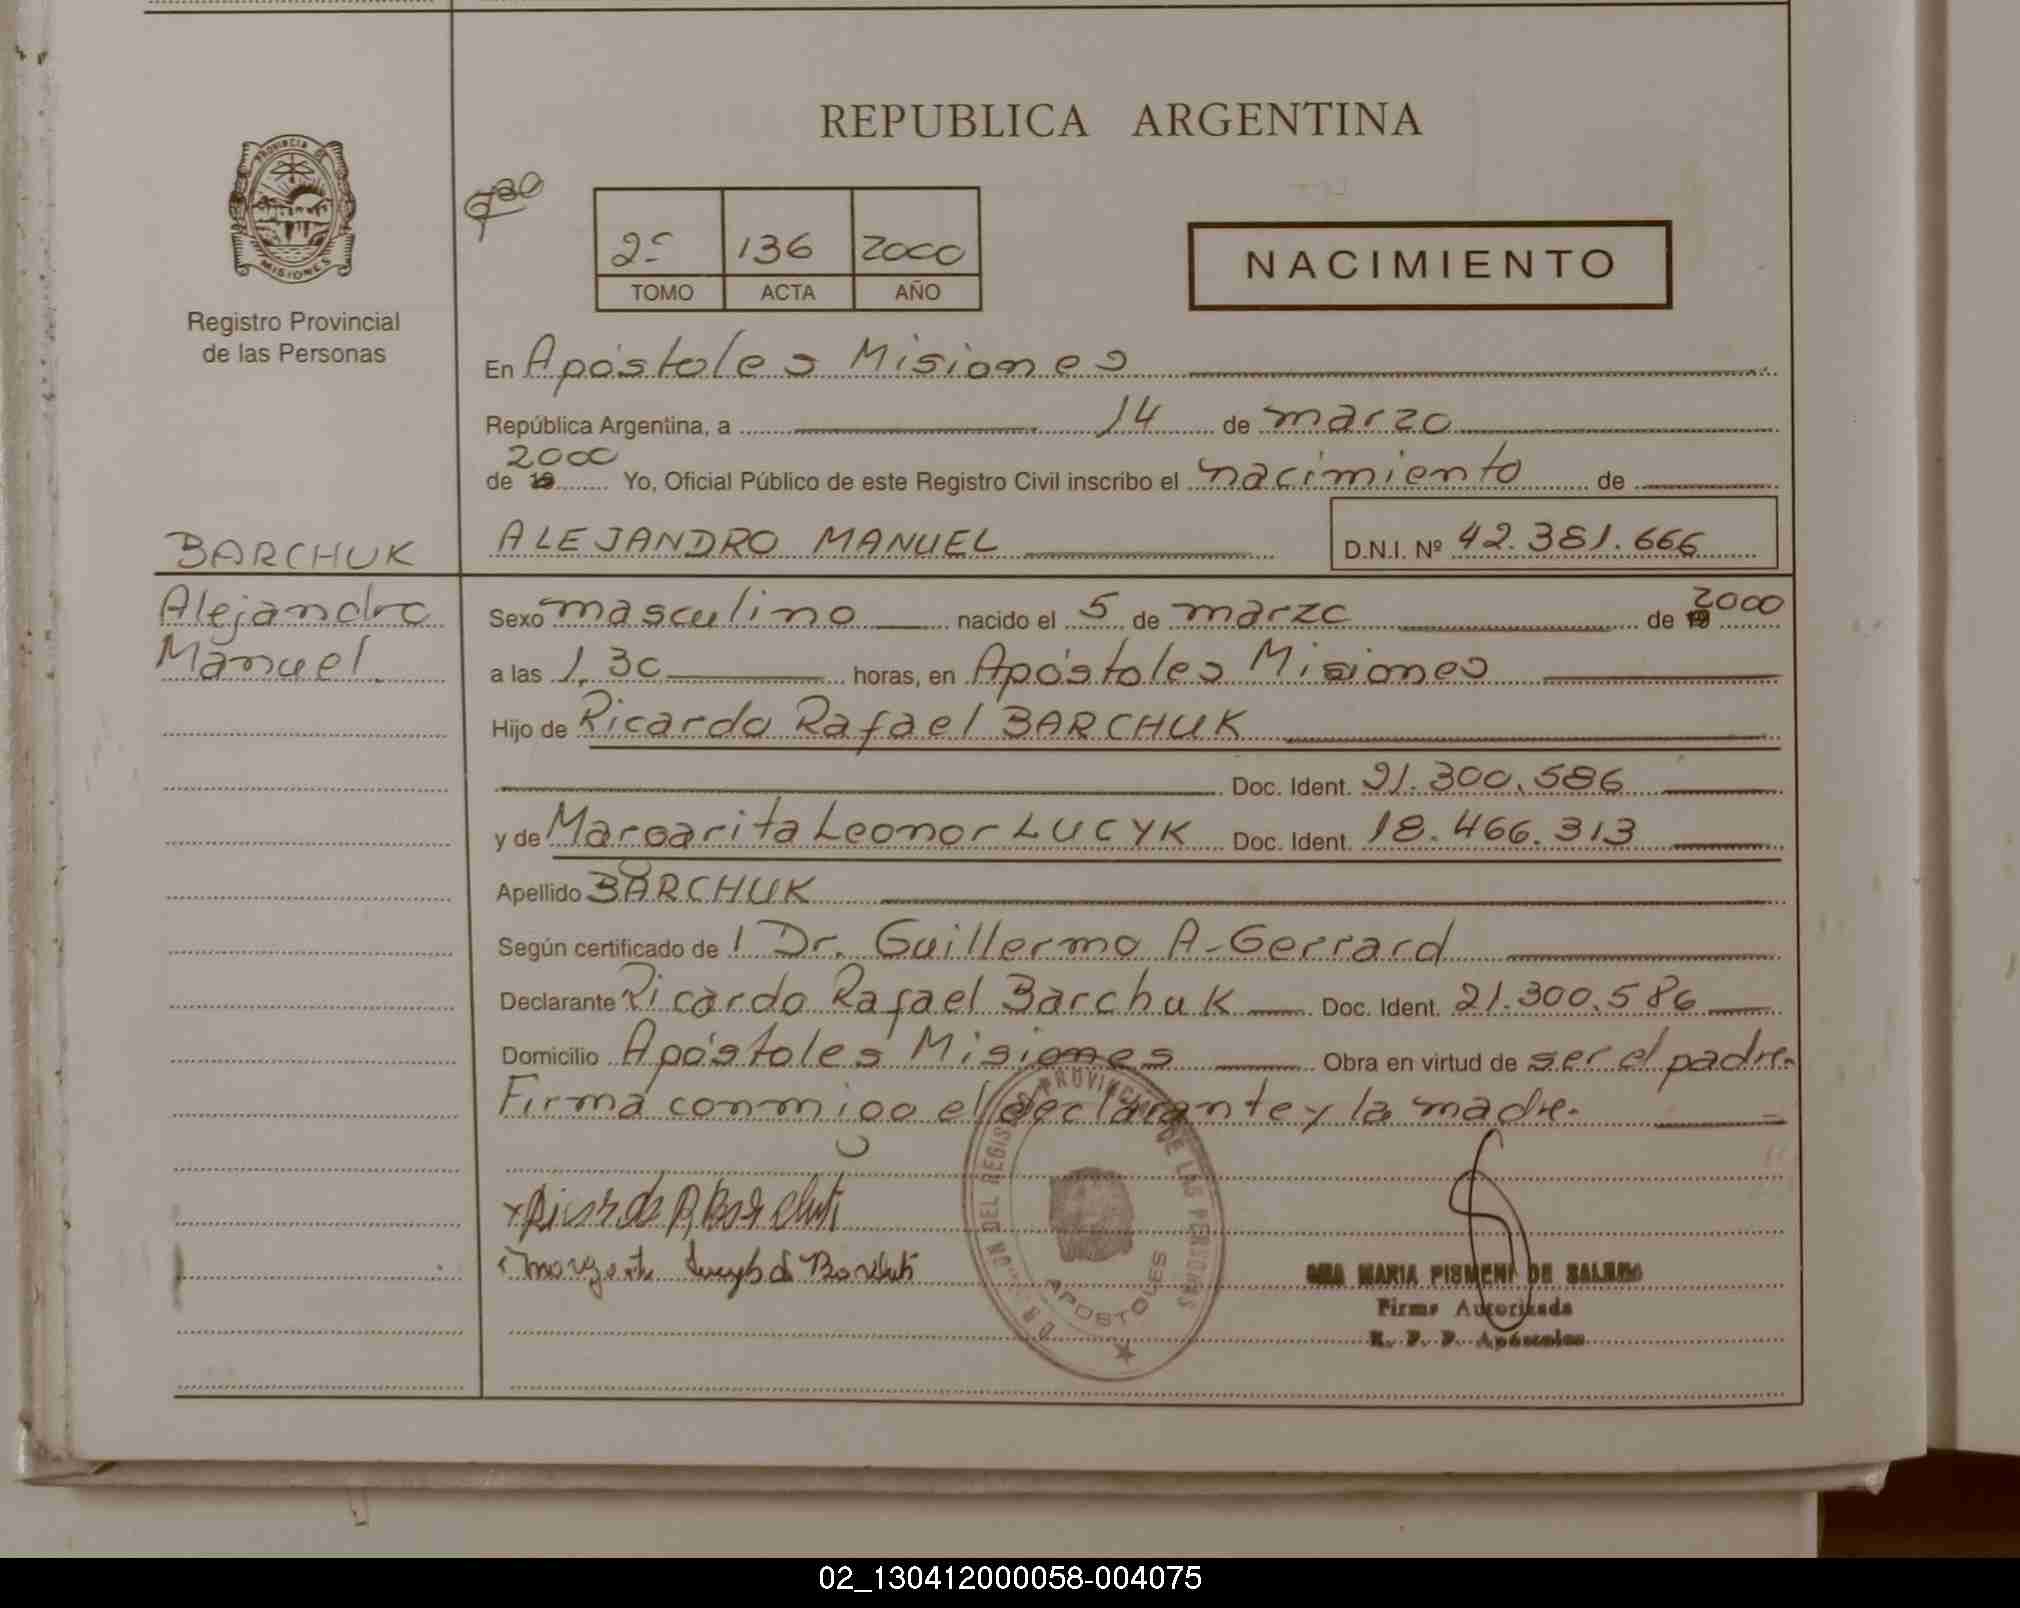 REPUBLICA ARGENTINA
PROVINCIA DE
MISIONES
Registro Provincial
de las Personas
2-
136
2000
TOMO
ACTA
AÑO
NACIMIENTO
En Apóstoles Misiones
República Argentina, a 14 de marzo
2000
de 19 Yo, Oficial Público de este Registro Civil inscribo el nacimiento de
BARCHUK
ALEJANDRO MANUEL D.N.I. Nº 42.381.666
Alejandro
Manuel.
Sexo masculino nacido el 5 de marzo de 19 2000
a las 1,30 horas, en Apóstoles Misiones
Hijo de Ricardo Rafael BARCHUK
Doc. Ident. 21.300.586
y de Margarita Leonor LUCYK Doc. Ident. 18.466.313
Apellido BARCHUK
Según certificado de l Dr. Guillermo A-Gerrard
Declarante Ricardo Rafael Barchuk Doc. Ident. 21.300.586
Domicilio Apóstoles Misiones Obra en virtud de ser el padre.
Firma conmigo el declarante y la madre.
Ricardo R Barchuk
PROVINCIAL DE LAS PERSONAS
APOSTOLES
MARIA PISMENI DE
Firma Autorizada
R. P. P. Apóstoles
02_130412000058-004075